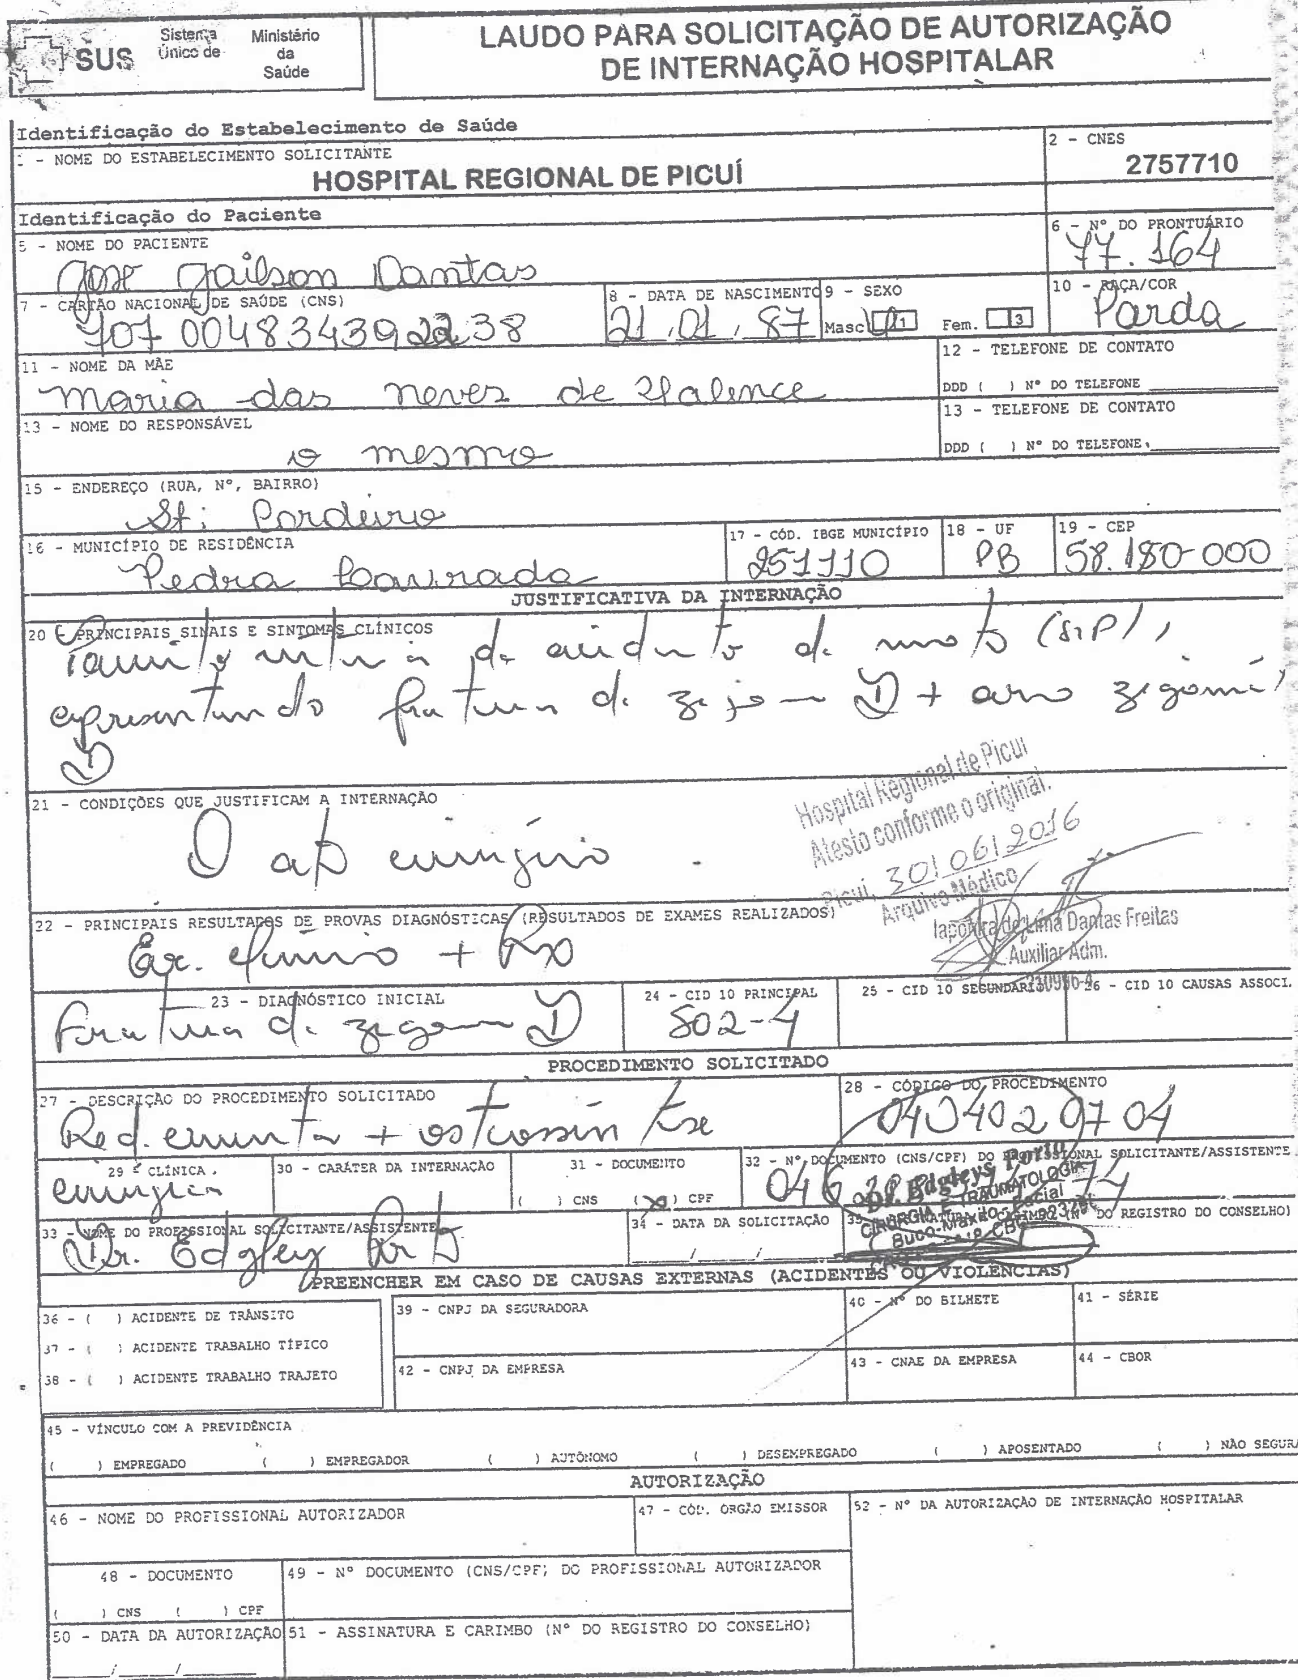 SUS
Sistema
Único de
Ministério
da
Saúde
LAUDO PARA SOLICITAÇÃO DE AUTORIZAÇÃO
DE INTERNAÇÃO HOSPITALAR
Identificação do Estabelecimento de Saúde
- NOME DO ESTABELECIMENTO SOLICITANTE
HOSPITAL REGIONAL DE PICUÍ
2 - CNES
2757710
Identificação do Paciente
5 - NOME DO PACIENTE
Jose Jailson Dantas
6 - Nº DO PRONTUÁRIO
77.164
7 - CARTÃO NACIONAL DE SAÚDE (CNS)
707 0048343922238
8 - DATA DE NASCIMENTO
21.01.87
9 - SEXO
Masc 1
Fem. 3
10 - RAÇA/COR
Parda
11 - NOME DA MÃE
Maria das neves de
12 - TELEFONE DE CONTATO
DDD ( ) Nº DO TELEFONE
13 - NOME DO RESPONSÁVEL
o mesmo
13 - TELEFONE DE CONTATO
DDD ( ) Nº DO TELEFONE
15 - ENDEREÇO (RUA, Nº, BAIRRO)
St: Cordeiro
16 - MUNICÍPIO DE RESIDÊNCIA
Pedra Lavrada
17 - CÓD. IBGE MUNICÍPIO
251110
18 - UF
PB
19 - CEP
58.180-000
JUSTIFICATIVA DA INTERNAÇÃO
20 - PRINCIPAIS SINAIS E SINTOMAS CLÍNICOS
Paciente vítima de acidente de moto (SIP),
apresentando fratura de zigoma D + arco
D
21 - CONDIÇÕES QUE JUSTIFICAM A INTERNAÇÃO
O ato cirúrgico
Hospital Regional de Picuí
Atesto conforme o original.
Picuí, 30/06/2016
Arquivo Médico
de Lima Dantas Freitas
Auxiliar Adm.
22 - PRINCIPAIS RESULTADOS DE PROVAS DIAGNÓSTICAS (RESULTADOS DE EXAMES REALIZADOS)
Ex. clínico + Rx
23 - DIAGNÓSTICO INICIAL
Fratura de zigoma D
24 - CID 10 PRINCIPAL
S02-4
25 - CID 10 SECUNDÁRIO
26 - CID 10 CAUSAS ASSOCI.
PROCEDIMENTO SOLICITADO
27 - DESCRIÇÃO DO PROCEDIMENTO SOLICITADO
Red. cruenta + osteossíntese
28 - CÓDIGO DO PROCEDIMENTO
0404020704
29 - CLÍNICA
cirúrgica
30 - CARÁTER DA INTERNAÇÃO
31 - DOCUMENTO
( ) CNS (X) CPF
32 - Nº DOCUMENTO (CNS/CPF) DO PROFISSIONAL SOLICITANTE/ASSISTENTE
Dr. Edgleys Porto
CIRURGIA E TRAUMATOLOGIA
Buco-Maxilo-Facial
33 - NOME DO PROFISSIONAL SOLICITANTE/ASSISTENTE
Dr. Edgley Porto
34 - DATA DA SOLICITAÇÃO
/ /
DO REGISTRO DO CONSELHO)
PREENCHER EM CASO DE CAUSAS EXTERNAS (ACIDENTES OU VIOLENCIAS)
36 - ( ) ACIDENTE DE TRÂNSITO
37 - ( ) ACIDENTE TRABALHO TÍPICO
38 - ( ) ACIDENTE TRABALHO TRAJETO
39 - CNPJ DA SEGURADORA
40 - Nº DO BILHETE
41 - SÉRIE
42 - CNPJ DA EMPRESA
43 - CNAE DA EMPRESA
44 - CBOR
45 - VÍNCULO COM A PREVIDÊNCIA
( ) EMPREGADO ( ) EMPREGADOR ( ) AUTÔNOMO ( ) DESEMPREGADO ( ) APOSENTADO ( ) NÃO SEGURA
AUTORIZAÇÃO
46 - NOME DO PROFISSIONAL AUTORIZADOR
47 - CÓD. ORGÃO EMISSOR
52 - Nº DA AUTORIZAÇÃO DE INTERNAÇÃO HOSPITALAR
48 - DOCUMENTO
( ) CNS ( ) CPF
49 - Nº DOCUMENTO (CNS/CPF) DO PROFISSIONAL AUTORIZADOR
50 - DATA DA AUTORIZAÇÃO
/ /
51 - ASSINATURA E CARIMBO (Nº DO REGISTRO DO CONSELHO)